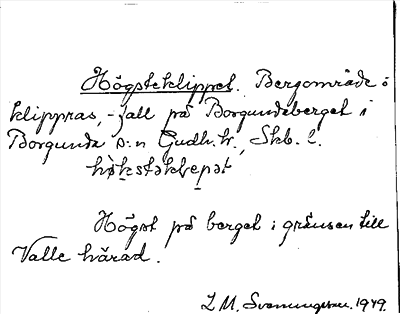 Högsteklippet. Bergområde i
klippras, -fall på Borgundaberget i
Borgunda s:n Gudh. h., Skb. l.
høkstəklepət
Högst på berget i gränsen till
Valle härad.
L. M. Svenungsson. 1949.